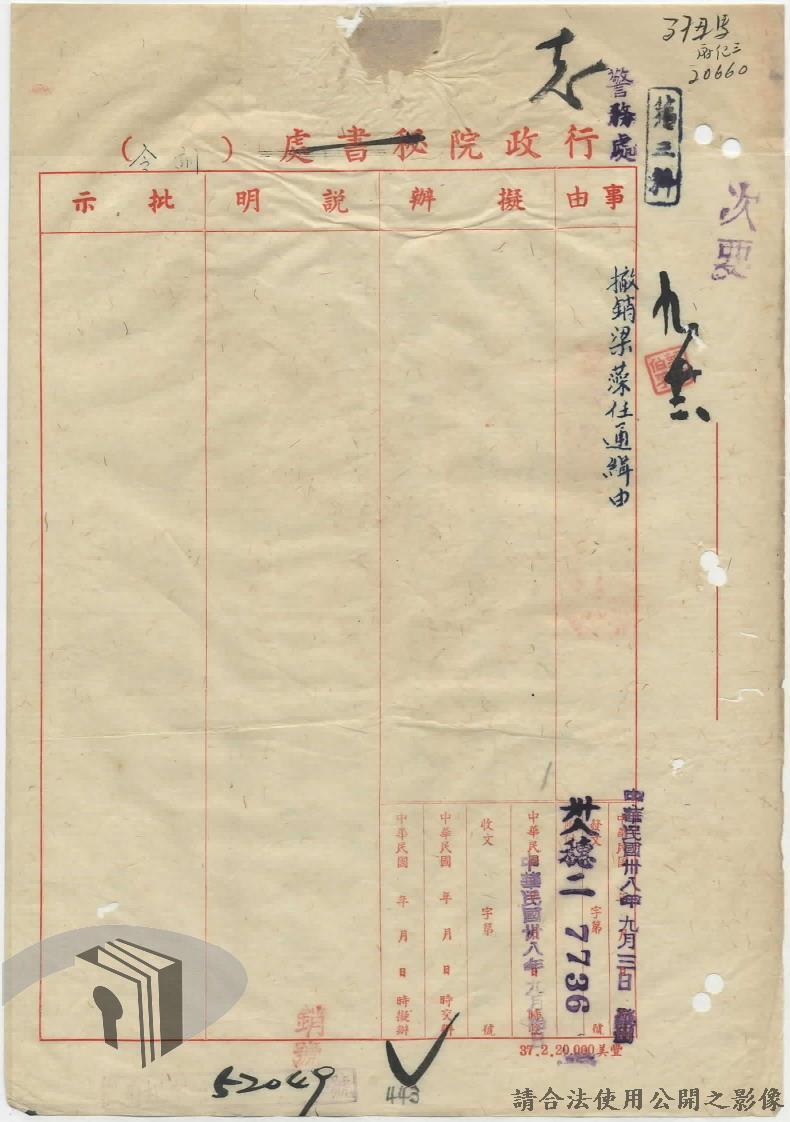 府纪三
20660
第三科
警務處
次要
行政院秘書處（令）
事由
擬辦
說明
批示
撤銷梁藻任通緝由
中華民國卅八年九月三日
發文 字第 號
卅八穗二 7736
中華民國卅八年九月
中華民國 日
收文 字第 號
中華民國 年 月 日 時交辦
中華民國 年 月 日 時擬辦
37.2.20.000美豐
銷號
52049
443
請合法使用公開之影像